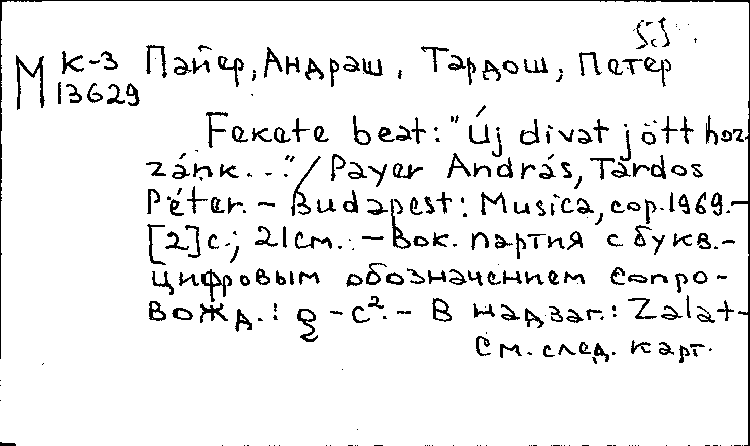 53.
М К-3 Пайер, Андраш, Тардош, Петер
13629
Fekete beat: "Új divat jött hoz-
zánk..." / Payer András, Tardos
Péter. – Budapest: Musica, cop. 1969. –
[2] с.; 21 см. – Вок. партия с букв.-
цифровым обозначением сопро-
вожд.: – c². – В надзаг.: Zalat-
См. след. карт.